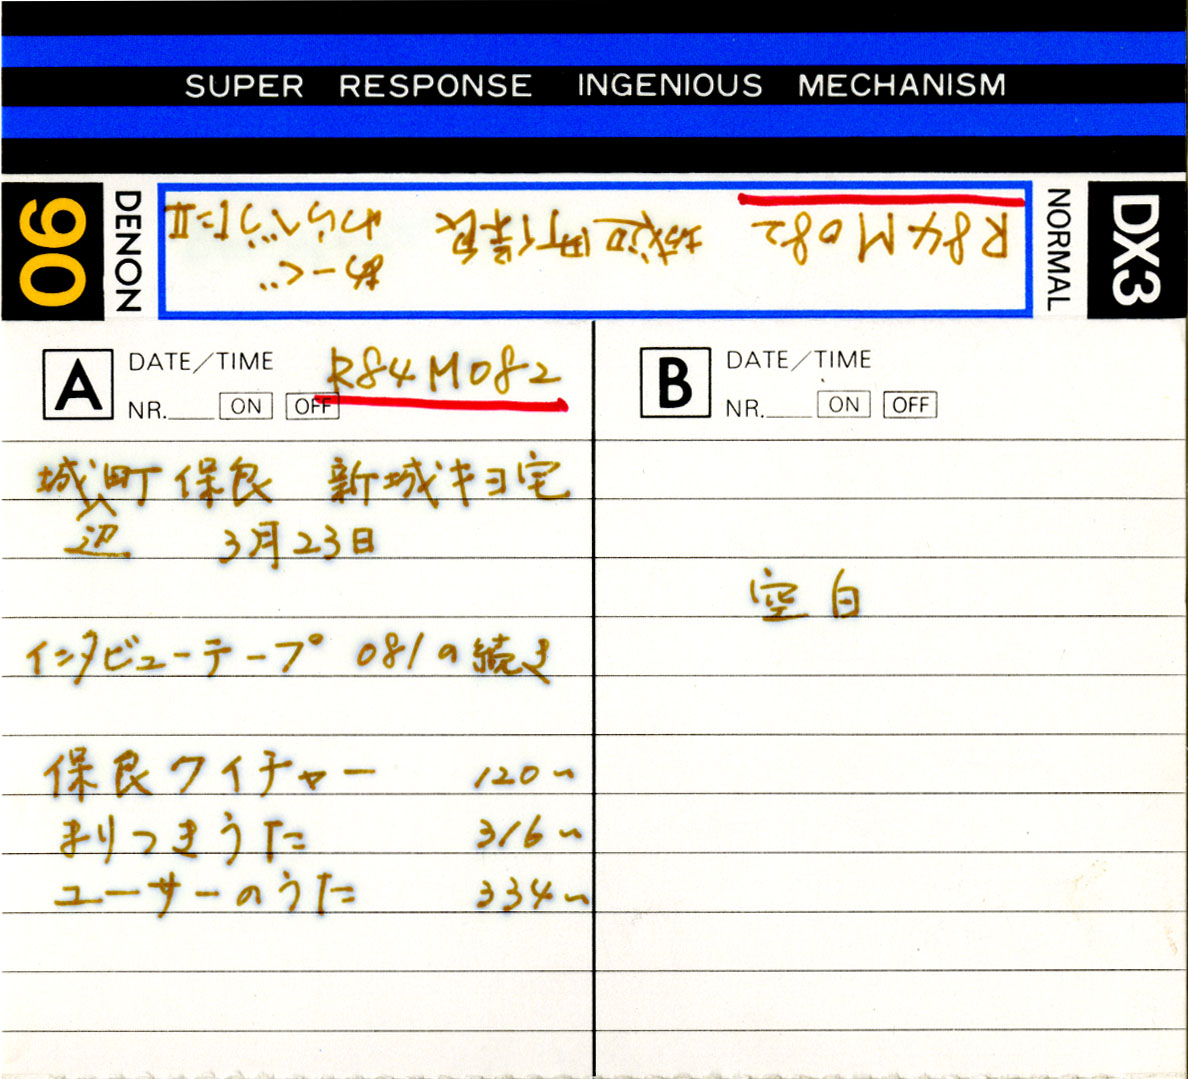 SUPER RESPONSE INGENIOUS MECHANISM
90
DENON
R84M082 城辺町保良 あーぐ
わらべうたⅡ
NORMAL
DX3
A DATE/TIME R84M082
NR. ON OFF
城町保良 新城キヨ宅
辺 3月23日
インタビューテープ 081の続き
保良クイチャー 120~
まりつきうた 316~
ユーサーのうた 334~
B DATE/TIME
NR. ON OFF
空白